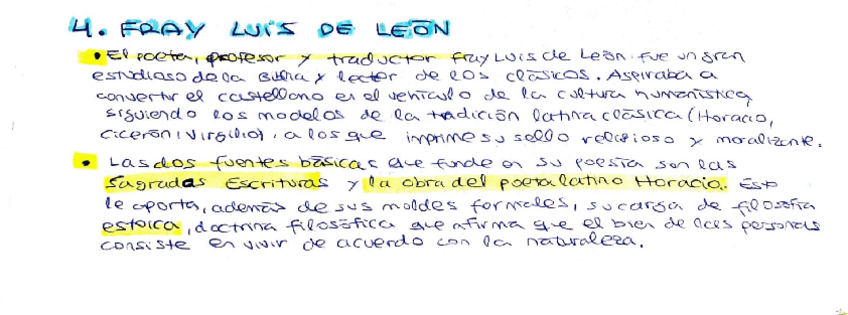 4. FRAY LUIS DE LEÓN
• El poeta, profesor y traductor fray Luis de León fue un gran
estudioso de la Biblia y lector de los clásicos. Aspiraba a
convertir el castellano en el vehículo de la cultura humanística,
siguiendo los modelos de la tradición latina clásica (Horacio,
Cicerón, Virgilio), a los que imprime su sello religioso y moralizante.
• Las dos fuentes básicas que funde en su poesía son las
Sagradas Escrituras y la obra del poeta latino Horacio. Este
le aporta, además de sus moldes formales, su carga de filosofía
estoica, doctrina filosófica que afirma que el bien de las personas
consiste en vivir de acuerdo con la naturaleza.